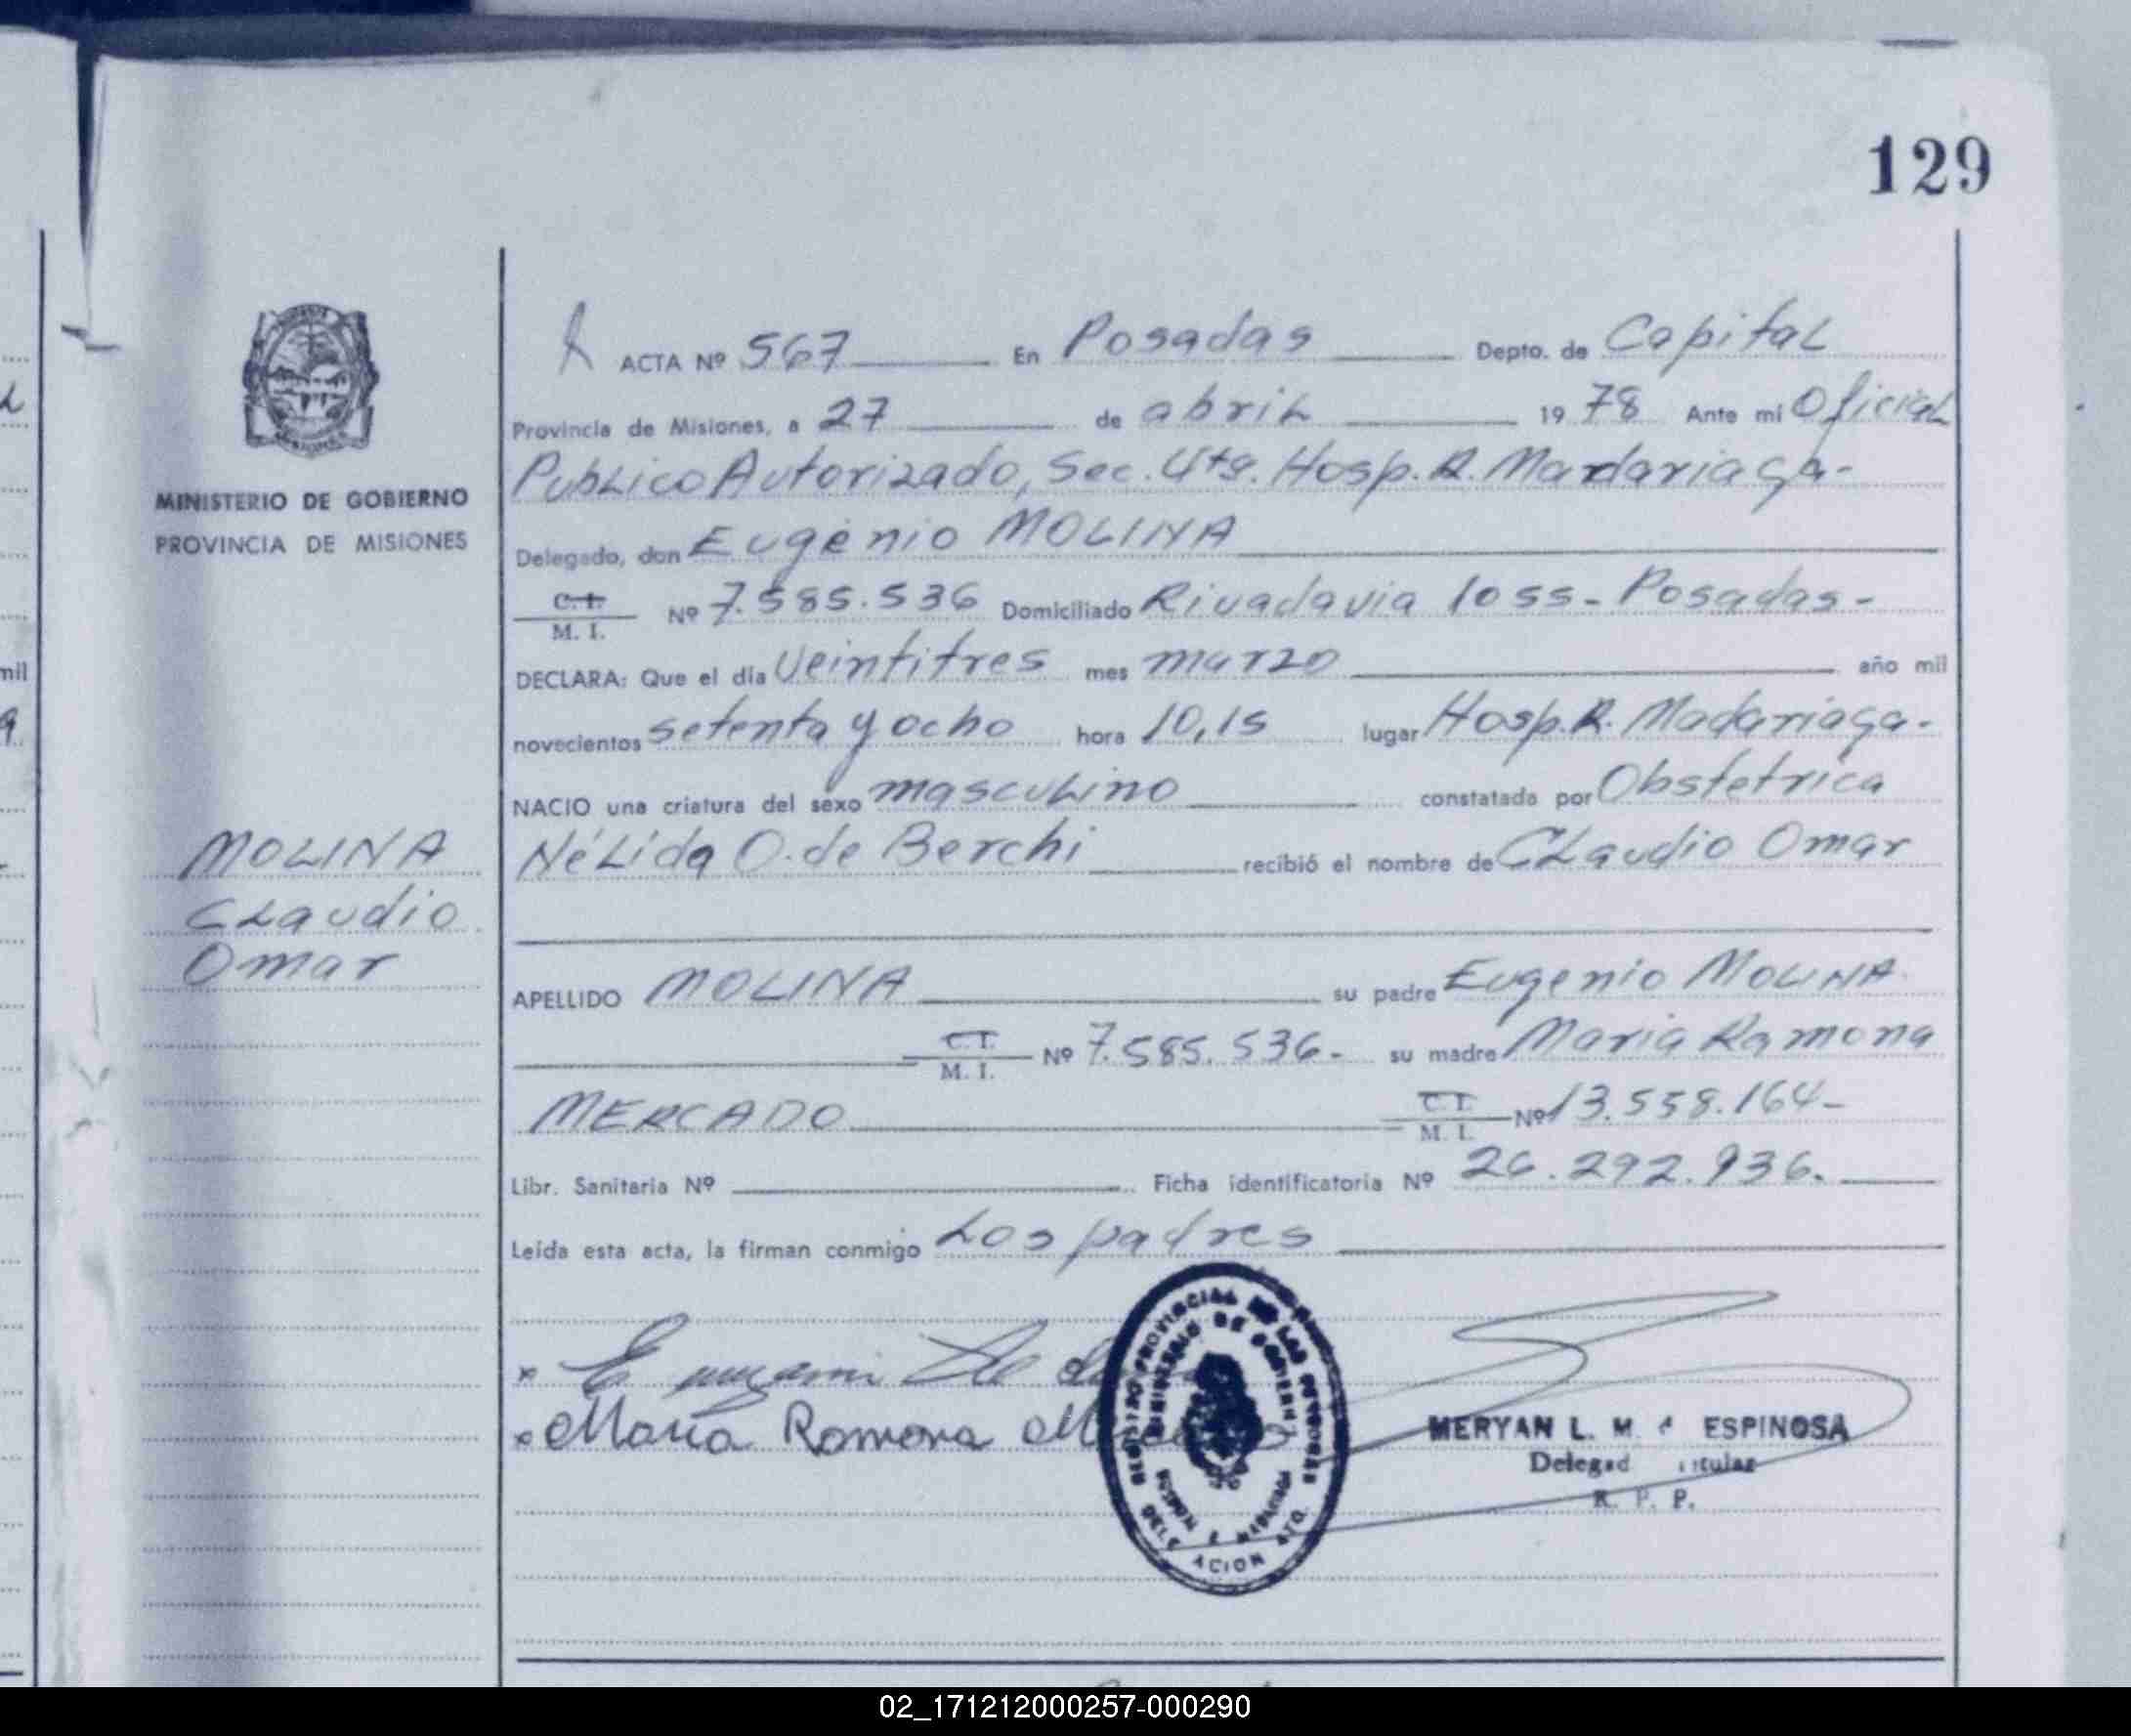 129
ACTA Nº 567 En Posadas Depto. de Capital
Provincia de Misiones, a 27 de abril 1978 Ante mi Oficial
Publico Autorizado, Sec. 4ta. Hosp. R. Madariaga-
MINISTERIO DE GOBIERNO
PROVINCIA DE MISIONES
Delegado, don Eugenio MOLINA
C. I. / M. I. Nº 7.585.536 Domiciliado Rivadavia 1055-Posadas-
DECLARA: Que el día Veintitres mes marzo año mil
novecientos setenta y ocho hora 10,15 lugar Hosp. R. Madariaga-
NACIO una criatura del sexo masculino constatada por Obstetrica
Nélida O. de Berchi recibió el nombre de Claudio Omar
MOLINA
Claudio
Omar
APELLIDO MOLINA su padre Eugenio MOLINA
C.I. / M. I. Nº 7.585.536- su madre Maria Ramona
MERCADO C.I. / M. I. Nº 13.558.164-
Libr. Sanitaria Nº Ficha identificatoria Nº 26.292.936.
Leída esta acta, la firman conmigo Los padres
x
x Maria Ramona
REGISTRO PROVINCIAL DE LAS PERSONAS
MINISTERIO DE GOBIERNO
MERYAN L. M. ESPINOSA
R. P. P.
mil
02_171212000257-000290